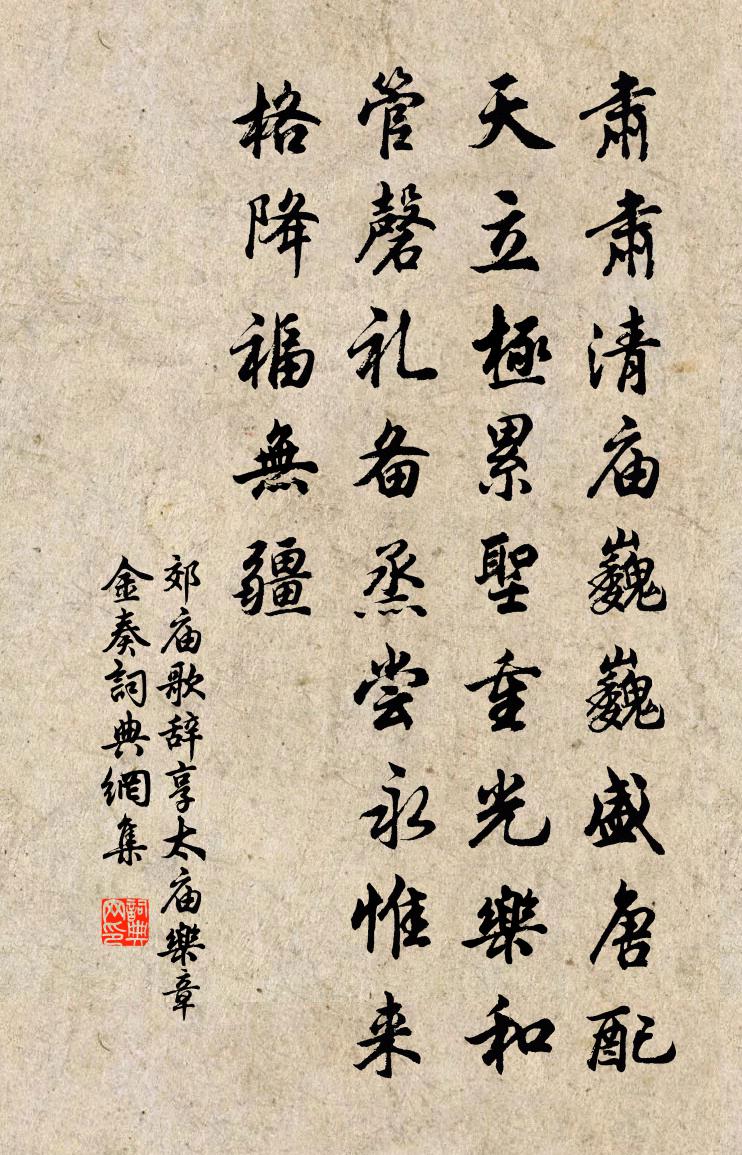 肅肅清庙巍巍盛唐配
天立極累聖重光樂和
管磬礼备烝尝永惟来
格降福無疆
郊庙歌辞享太庙樂章
金奏詞典網集
詞典網印